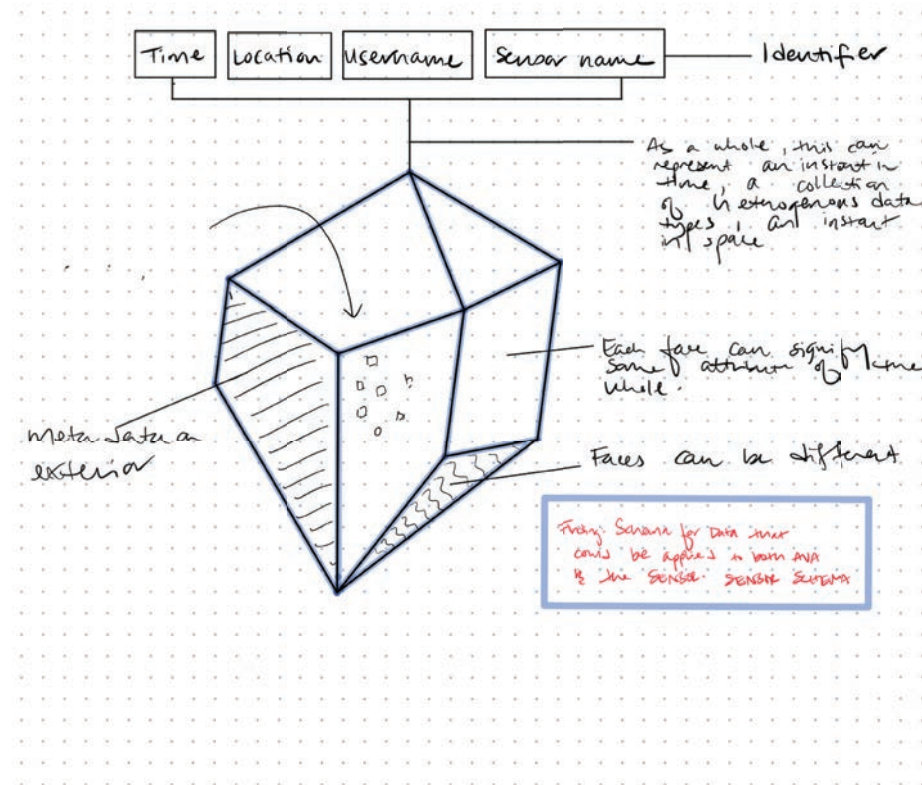 Time Location Username Sensor name Identifier
As a whole, this can
represent an instant in
time, a collection
of hetrogenous data
types, an instant
in space
Each face can signify
some attribute of the
whole.
meta data on
exterior
Faces can be different
Schema for Data that
could be applied to both AVA
& the SENSOR. SENSOR SCHEMA